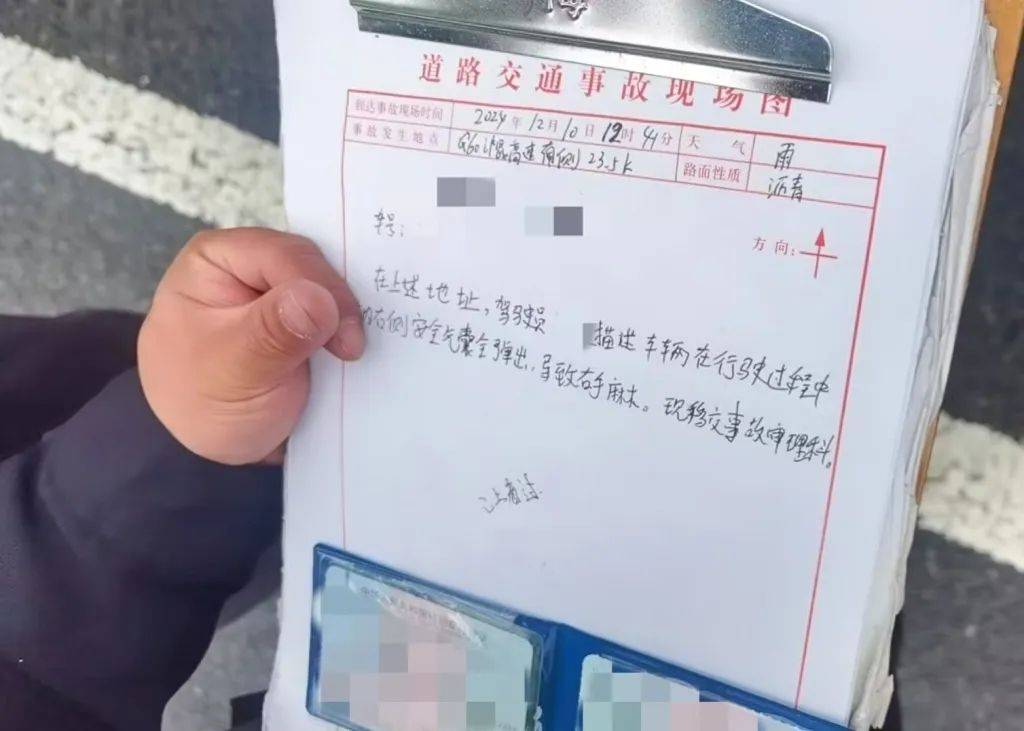 道路交通事故现场图
到达事故现场时间 2024年12月10日12时41分 天气 雨
事故发生地点 G60沪昆高速南侧23.5K 路面性质 沥青
方向:
车号:
在上述地址,驾驶员 描述车辆在行驶过程中
右侧安全气囊全弹出,导致右手麻木。现移交事故审理科。
以上看过